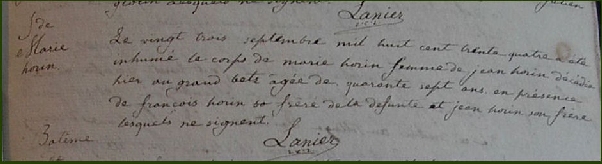 lesquels ne signent.
Lanier
S. de
Marie
horin
Le vingt trois septembre mil huit cent trente quatre a été
inhumé le corps de marie horin femme de jean horin décédée
hier au grand betz agée de quarente sept ans, en présence
de françois horin frère de la defunte et jean horin son frère
lesquels ne signent.
Lanier
Batème